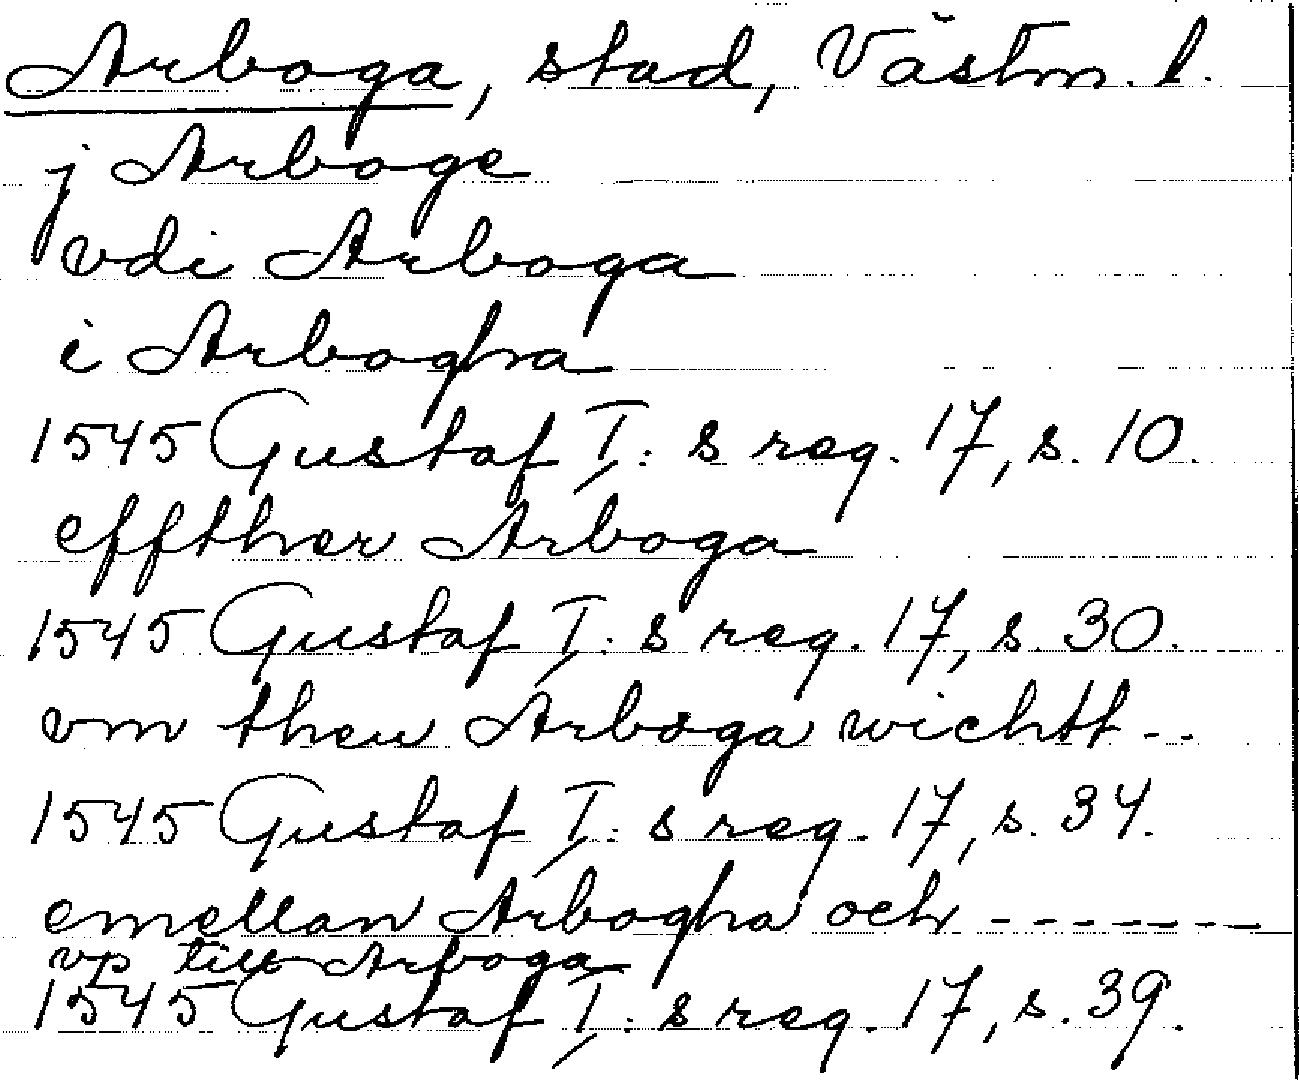 Arboga, stad, Västm. l.
j Arboge
vdi Arboga
i Arbogha
1545 Gustaf I: s reg. 17, s. 10.
effther Arboga
1545 Gustaf I: s reg. 17, s. 30.
vm then Arboga wichtt - -
1545 Gustaf I: s reg. 17, s. 34.
emellan Arbogha och - - - - - - -
vp till Arboga
1545 Gustaf I: s reg. 17, s. 39.